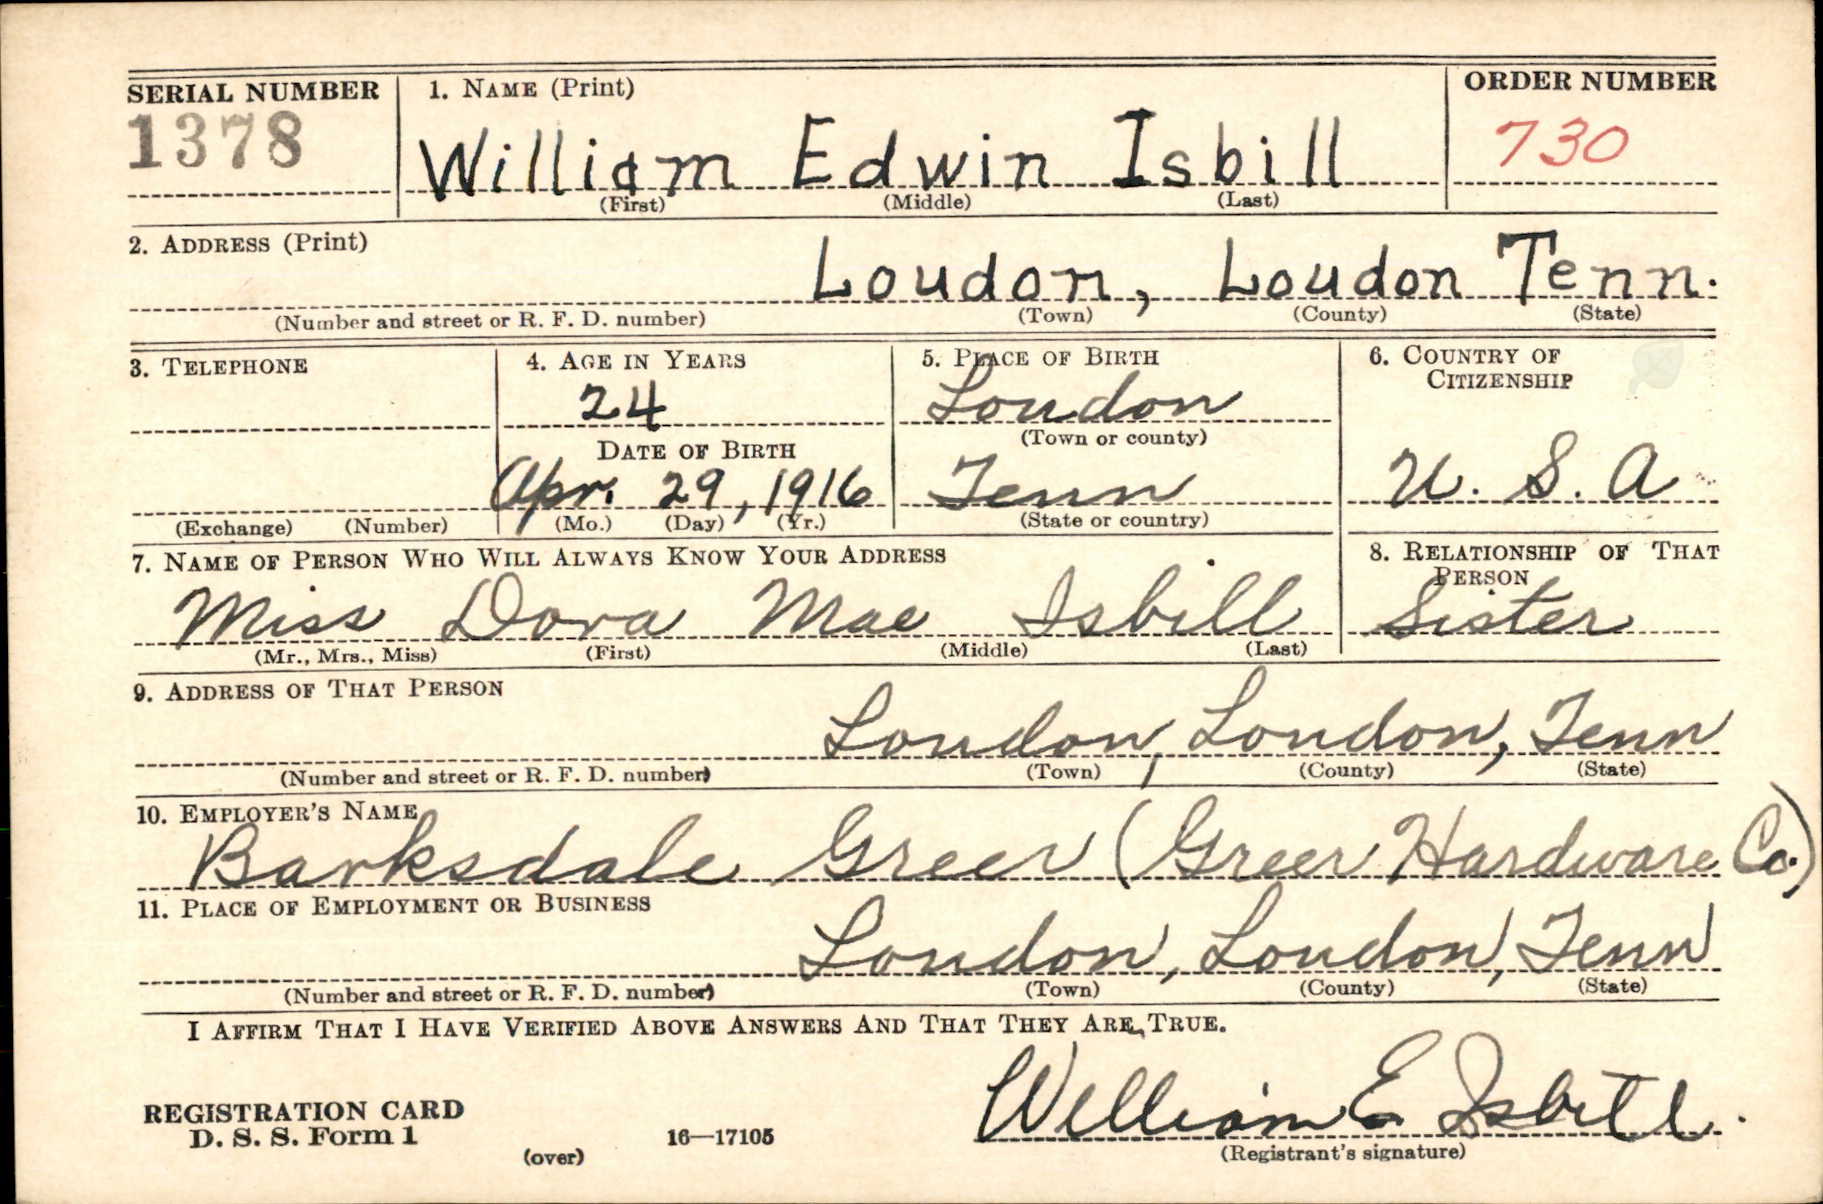 SERIAL NUMBER 1. NAME (Print) ORDER NUMBER
1378 William Edwin Isbill 730
(First) (Middle) (Last)
2. ADDRESS (Print)
Loudon, Loudon Tenn.
(Number and street or R. F. D. number) (Town) (County) (State)
3. TELEPHONE 4. AGE IN YEARS 5. PLACE OF BIRTH 6. COUNTRY OF
CITIZENSHIP
24 Loudon
(Town or county)
DATE OF BIRTH
Apr. 29, 1916 Tenn U. S. A
(Exchange) (Number) (Mo.) (Day) (Yr.) (State or country)
7. NAME OF PERSON WHO WILL ALWAYS KNOW YOUR ADDRESS 8. RELATIONSHIP OF THAT
PERSON
Miss Dora Mae Isbill Sister
(Mr., Mrs., Miss) (First) (Middle) (Last)
9. ADDRESS OF THAT PERSON
Loudon, Loudon, Tenn
(Number and street or R. F. D. number) (Town) (County) (State)
10. EMPLOYER'S NAME
Barksdale Greer (Greer Hardware Co.)
11. PLACE OF EMPLOYMENT OR BUSINESS
Loudon, Loudon, Tenn
(Number and street or R. F. D. number) (Town) (County) (State)
I AFFIRM THAT I HAVE VERIFIED ABOVE ANSWERS AND THAT THEY ARE TRUE.
William E Isbill.
REGISTRATION CARD
D. S. S. Form 1 16—17105
(over) (Registrant's signature)